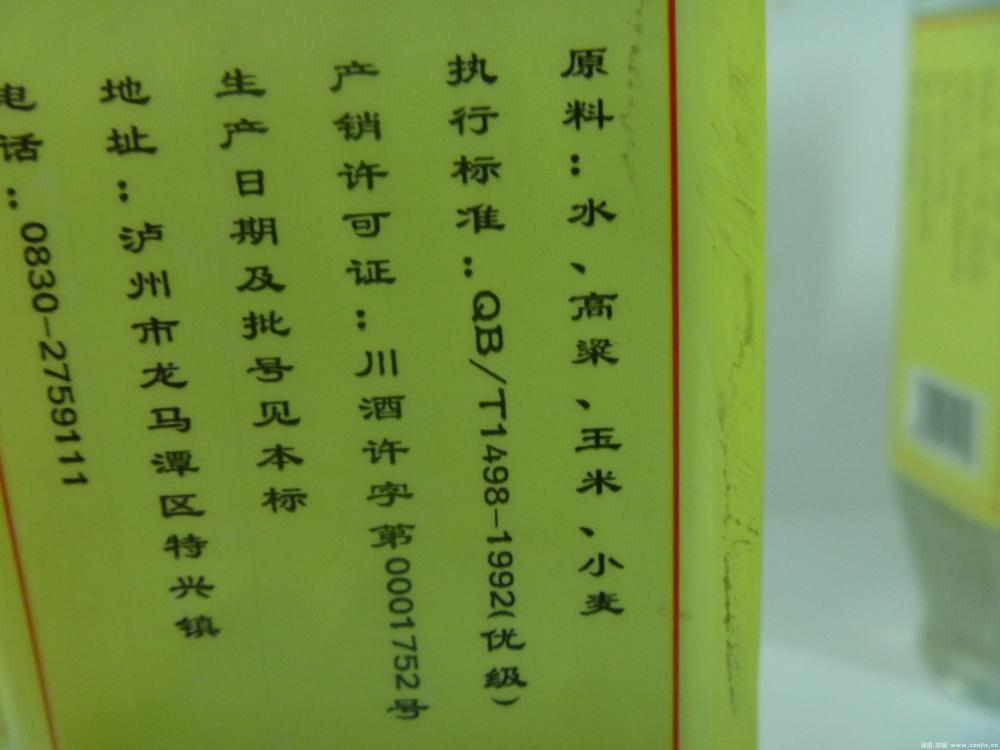 原料：水、高粱、玉米、小麦
执行标准：QB/T1498-1992(优级)
产销许可证：川酒许字第0001752号
生产日期及批号见本标
地址：泸州市龙马潭区特兴镇
电话：0830-2759111